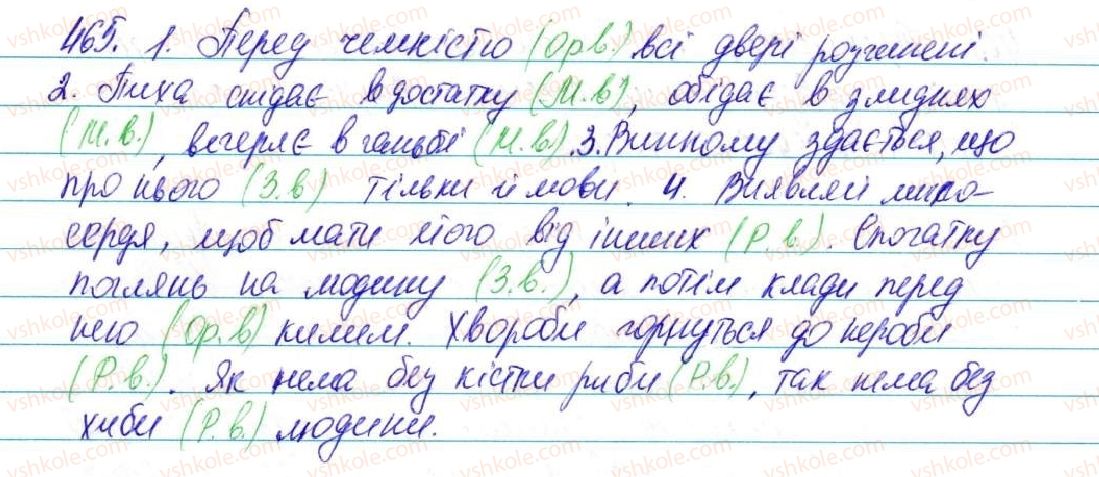 465. 1. Перед чемністю (Ор.в.) всі двері розчинені.
2. Пиха снідає в достатку (М.в.), обідає в злиднях
(М.в.), вечеряє в ганьбі (М.в.). 3. Винному здається, що
про нього (З.в) тільки й мови. 4. Виявляй мило-
сердя, щоб мати його від інших (Р.в.). Спочатку
поглянь на людину (З.в.), а потім клади перед
нею (Ор.в) килим. Хвороби горнуться до нероби
(Р.в.). Як нема без кістки риби (Р.в.), так нема без
хиби (Р.в.) людини.